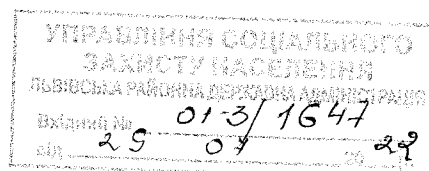 УПРАВЛІННЯ СОЦІАЛЬНОГО
ЗАХИСТУ НАСЕЛЕННЯ
ЛЬВІВСЬКА РАЙОННА ДЕРЖАВНА АДМІНІСТРАЦІЯ
Вхідний № 01-3/1647
від 29 07 20 22 р.